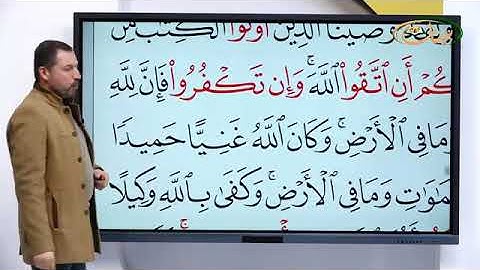 وَصَّيْنَا ٱلَّذِينَ أُوتُوا۟ ٱلْكِتَٰبَ
كُمْ أَنِ ٱتَّقُوا۟ ٱللَّهَ ۚ وَإِن تَكْفُرُوا۟ فَإِنَّ لِلَّهِ
وَمَا فِى ٱلْأَرْضِ ۚ وَكَانَ ٱللَّهُ غَنِيًّا حَمِيدًا
مَٰوَٰتِ وَمَا فِى ٱلْأَرْضِ ۚ وَكَفَىٰ بِٱللَّهِ وَكِيلًا